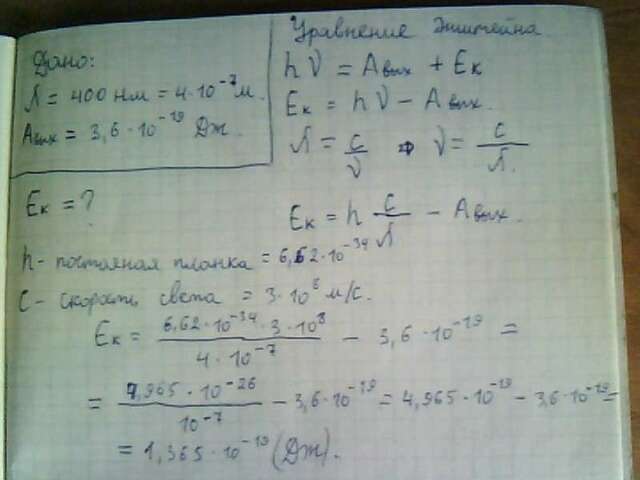 Дано:
λ = 400 нм = 4·10⁻⁷ м.
Aвых = 3,6·10⁻¹⁹ Дж.
Eк = ?
Уравнение Эйнштейна
hν = Aвых + Eк
Eк = hν − Aвых.
λ = c/ν ⇒ ν = c/λ.
Eк = h c/λ − Aвых.
h - постояная планка = 6,62·10⁻³⁴
c - скорость света = 3·10⁸ м/с.
Eк = (6,62·10⁻³⁴·3·10⁸)/(4·10⁻⁷) − 3,6·10⁻¹⁹ =
= (4,965·10⁻²⁶)/(10⁻⁷) − 3,6·10⁻¹⁹ = 4,965·10⁻¹⁹ − 3,6·10⁻¹⁹ =
= 1,365·10⁻¹⁹ (Дж).